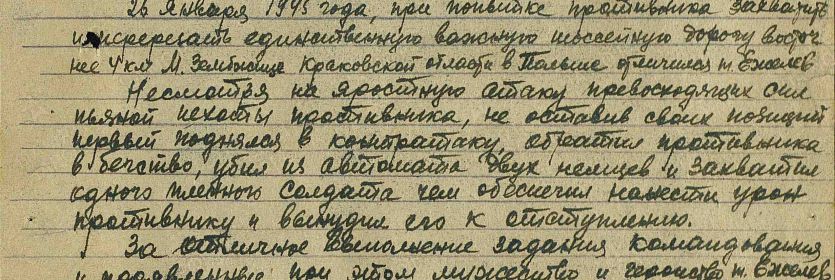 26 января 1945 года, при попытке противника захватить
и перерезать единственную важную шоссейную дорогу восточ
нее 4 км М. Зембжице Краковской области в Польше отличился т. Ежелев
Несмотря на яростную атаку превосходящих сил
пьяной пехоты противника, не оставив своих позиций
первый поднялся в контратаку, обратил противника
в бегство, убил из автомата двух немцев и захватил
одного пленного солдата чем обеспечил нанести урон
противнику и вынудил его к отступлению.
За отличное выполнение задания командования
и проявленные при этом мужество и геройство т. Ежелев